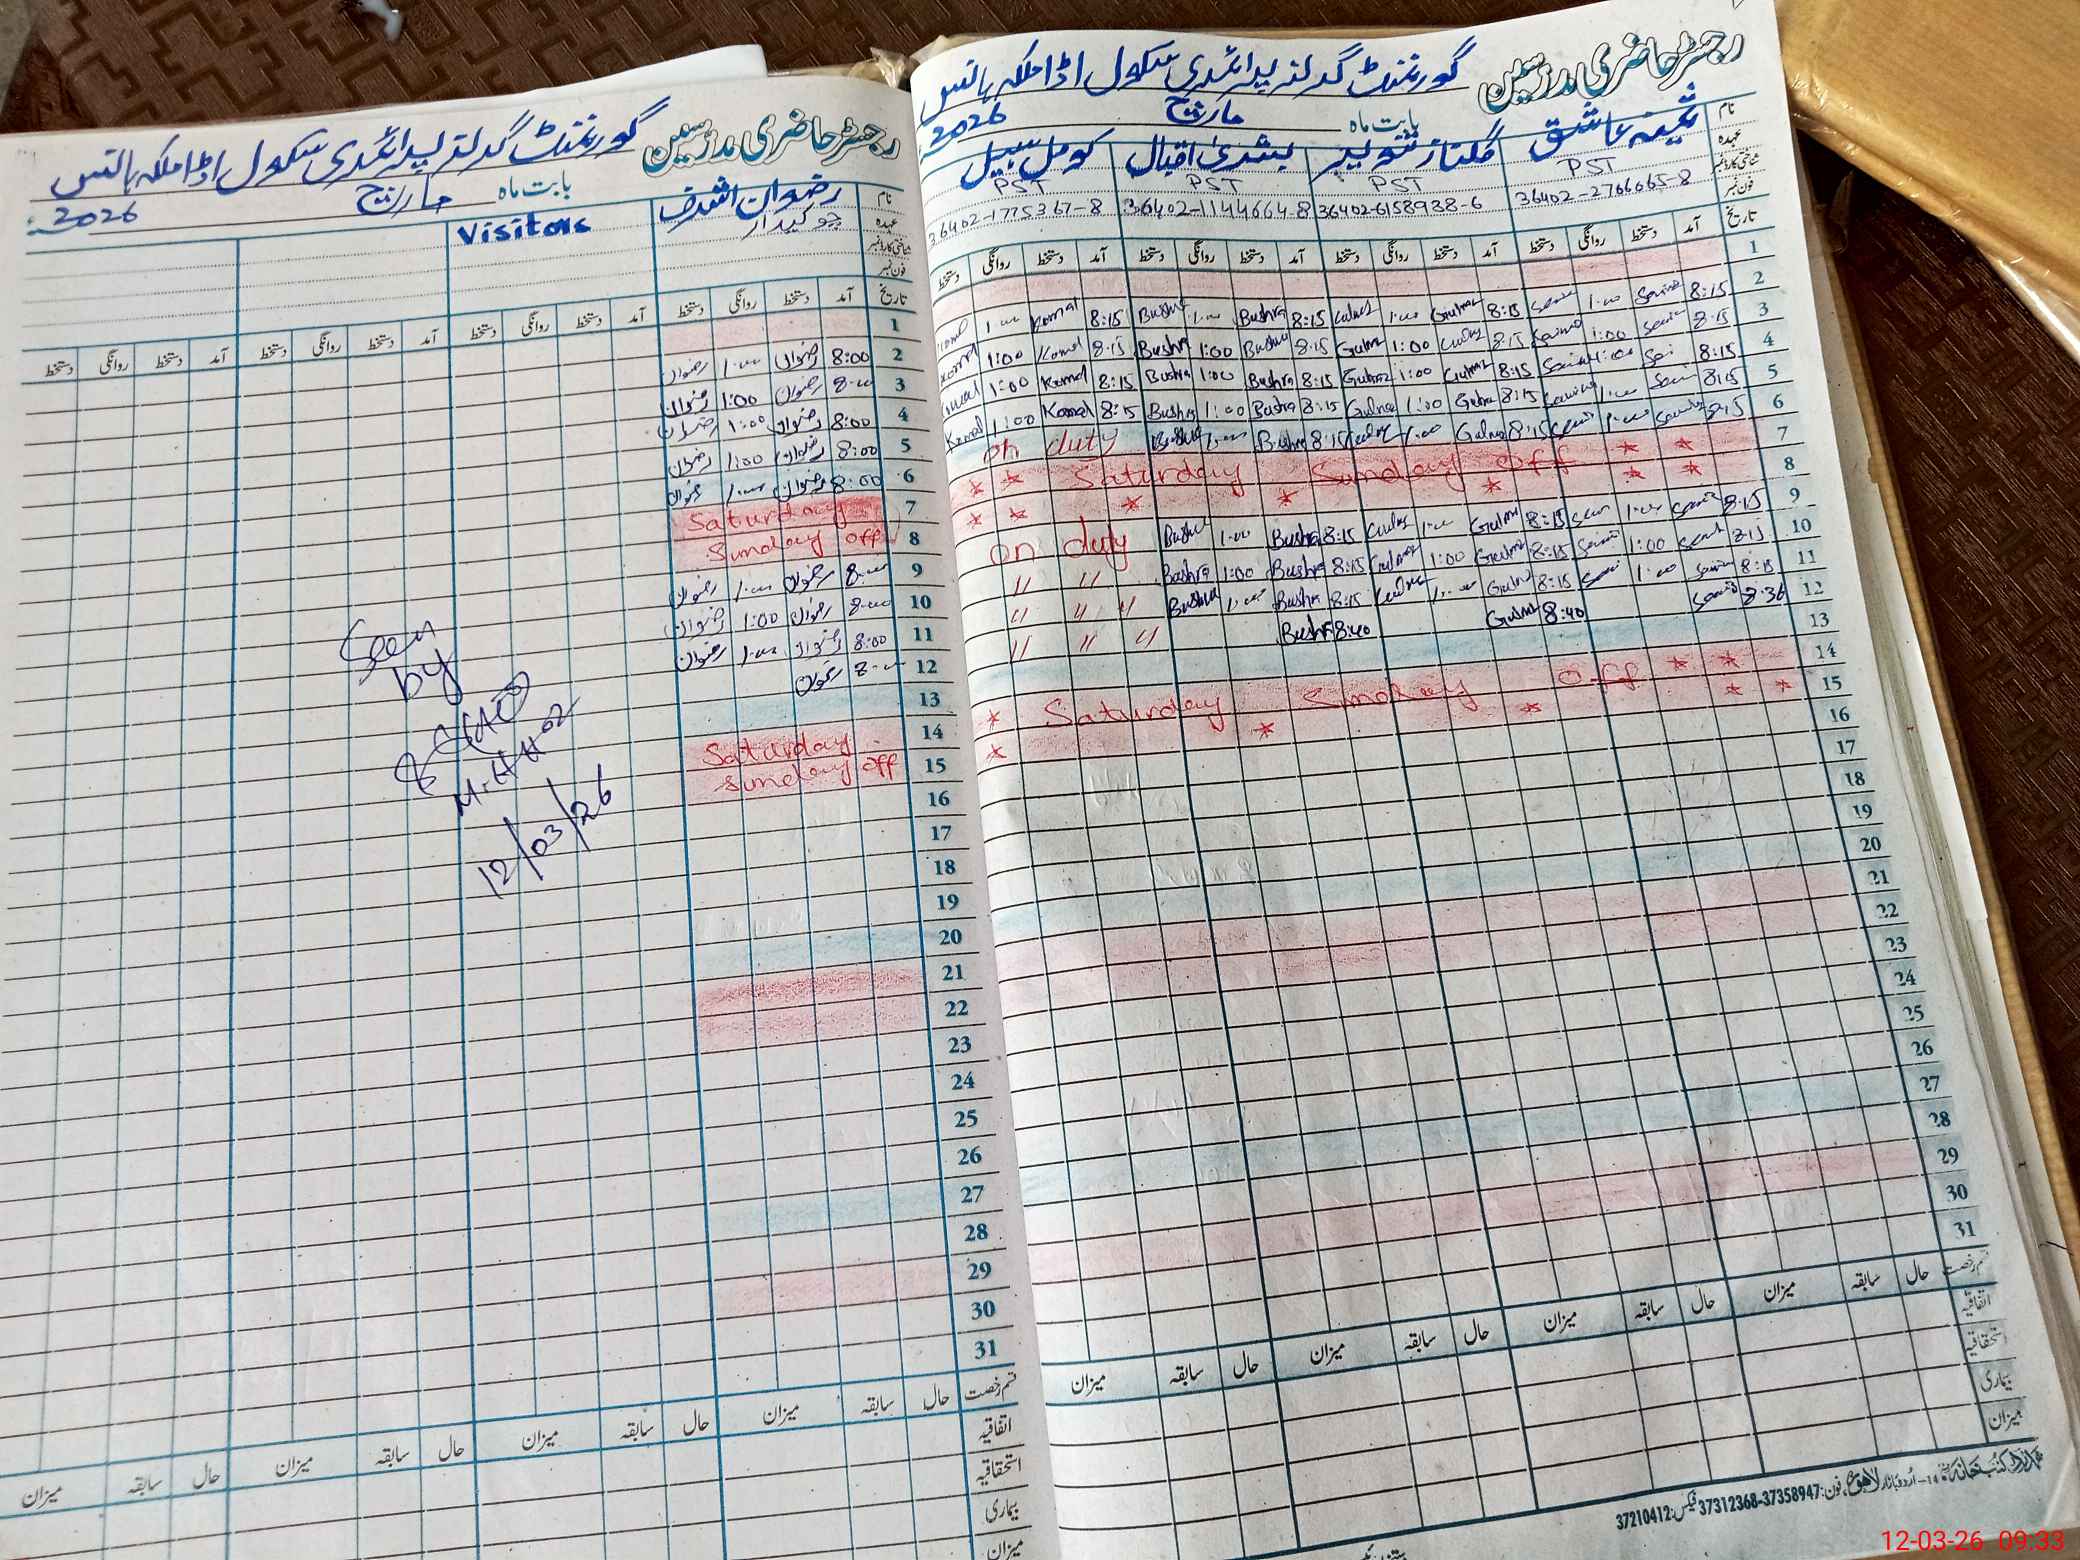 رجسٹر حاضری مدرسین گورنمنٹ گرلز پرائمری سکول اڈا ملکہ ہانس
بابت ماہ مارچ 2026
نام ثمینہ عاشق گلناز شوکت بشریٰ اقبال کومل سہیل
عہدہ PST PST PST PST
شناختی کارڈ نمبر 36402-2766065-8 36402-6158938-6 36402-1144664-8 36402-1775367-8
فون نمبر
تاریخ آمد دستخط روانگی دستخط آمد دستخط روانگی دستخط آمد دستخط روانگی دستخط آمد دستخط روانگی دستخط
1
2 8:15 1:00 8:15 Gulnaz 1:00 8:15 Bushra 1:00 Bushra 8:15 Komal 1:00
3 8:15 1:00 8:15 1:00 8:15 Bushra 1:00 Bushra 8:15 Komal 1:00 Komal
4 8:15 1:00 8:15 Gulnaz 1:00 Gulnaz 8:15 Bushra 1:00 Bushra 8:15 Komal 1:00 Komal
5 8:15 1:00 8:15 Gulna 1:00 Gulnaz 8:15 Bushra 1:00 Bushra 8:15 Komal 1:00 Komal
6 8:15 1:00 8:15 Gulnaz 1:00 8:15 Bushra 1:00 Bushra on duty
7 * * Saturday Sunday off * *
8 * * * * * * *
9 8:15 1:00 8:15 Gulnaz 1:00 8:15 Bushra 1:00 Bushra on duty
10 8:15 1:00 8:15 Gulnaz 1:00 Gulnaz 8:15 Bushra 1:00 Bushra " "
11 8:15 1:00 8:15 Gulnaz 1:00 8:15 Bushra 1:00 Bushra " " "
12 8:36 8:40 Gulnaz 8:40 Bushra " " "
13
14 * Saturday Sunday off * *
15 * * * * *
16
17
18
19
20
21
22
23
24
25
26
27
28
29
30
31
قسم رخصت حال سابقہ میزان حال سابقہ میزان حال سابقہ میزان حال سابقہ میزان
اتفاقیہ
استحقاقیہ
بیماری
میزان
اُردو بازار لاہور فون: 37312368-37358947 فیکس: 37210412
رجسٹر حاضری مدرسین گورنمنٹ گرلز پرائمری سکول اڈا ملکہ ہانس
بابت ماہ مارچ 2026
نام رضوان اشرف Visitors
عہدہ چوکیدار
شناختی کارڈ نمبر
فون نمبر
تاریخ آمد دستخط روانگی دستخط آمد دستخط روانگی دستخط آمد دستخط روانگی دستخط آمد دستخط روانگی دستخط
1
2 8:00 رضوان 1:00 رضوان
3 8:00 رضوان 1:00 رضوان
4 8:00 رضوان 1:00 رضوان
5 8:00 رضوان 1:00 رضوان
6 8:00 رضوان 1:00 رضوان
7 Saturday
8 Sunday off
9 8:00 رضوان 1:00 رضوان
10 8:00 رضوان 1:00 رضوان
11 8:00 رضوان 1:00 رضوان
12 8:00 رضوان
13
14 Saturday
15 Sunday off
16
17
18
19
20
21
22
23
24
25
26
27
28
29
30
31
Seen
by
12/03/26
قسم رخصت حال سابقہ میزان حال سابقہ میزان حال سابقہ میزان حال سابقہ میزان
اتفاقیہ
استحقاقیہ
بیماری
میزان
12-03-26 09:33